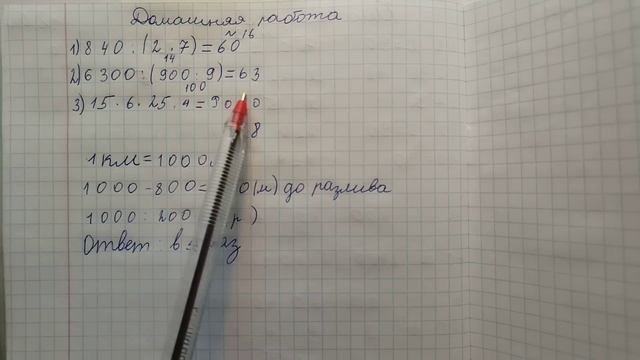 Домашняя работа
1) 840 : (2 · 7) = 60 ~ 16
14
2) 6300 : (900 : 9) = 63
100
3) 15 · 6 · 25 · 4 = 90 0
8
1 км = 1000
1000 - 800 = 0 (м) до разлива
1000 : 200 р)
Ответ: в 2з